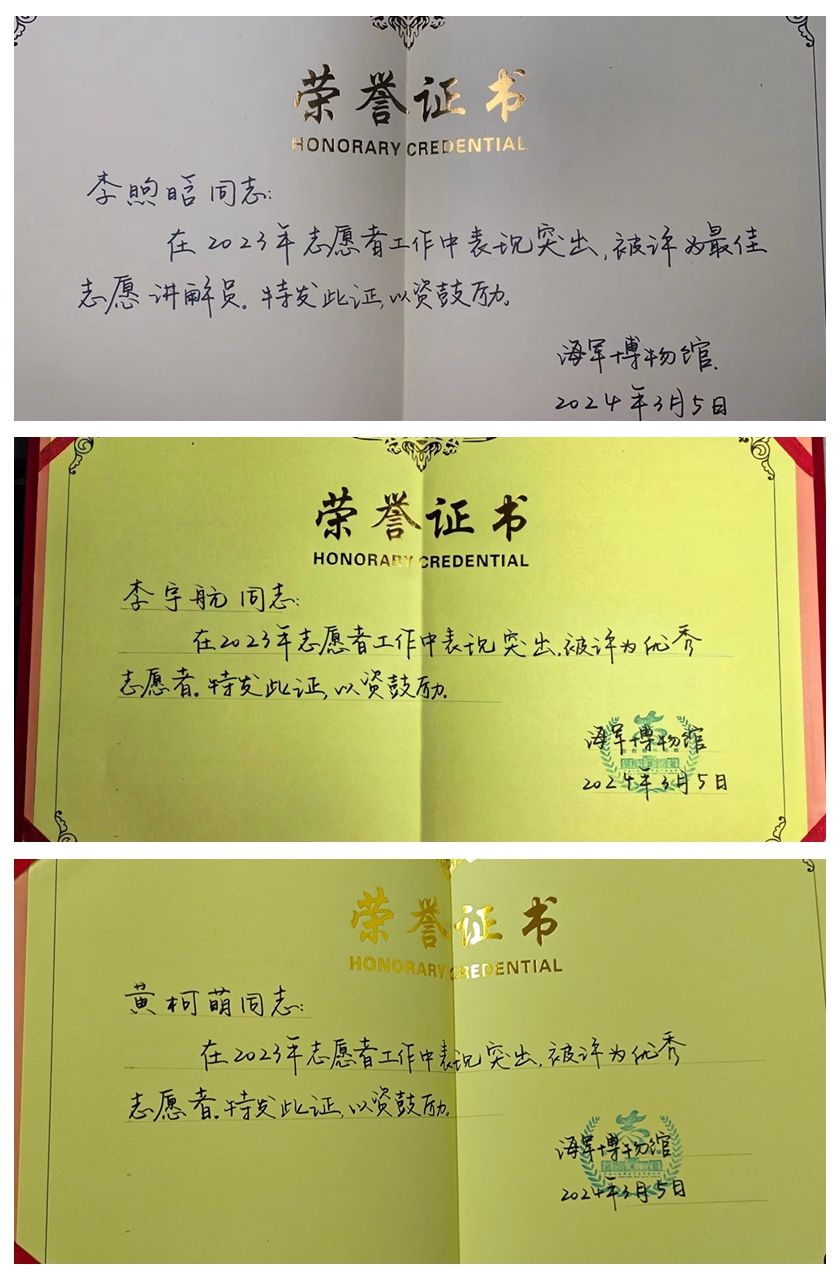 荣誉证书
HONORARY CREDENTIAL
李煦晗同志:
在2023年志愿者工作中表现突出,被评为最佳
志愿讲解员。特发此证,以资鼓励。
海军博物馆.
2024年3月5日
荣誉证书
HONORARY CREDENTIAL
李宇航同志:
在2023年志愿者工作中表现突出,被评为优秀
志愿者。特发此证,以资鼓励.
海军博物馆
2024年3月5日
荣誉证书
HONORARY CREDENTIAL
黄柯萌同志:
在2023年志愿者工作中表现突出,被评为优秀
志愿者.特发此证,以资鼓励.
海军博物馆
2024年3月5日